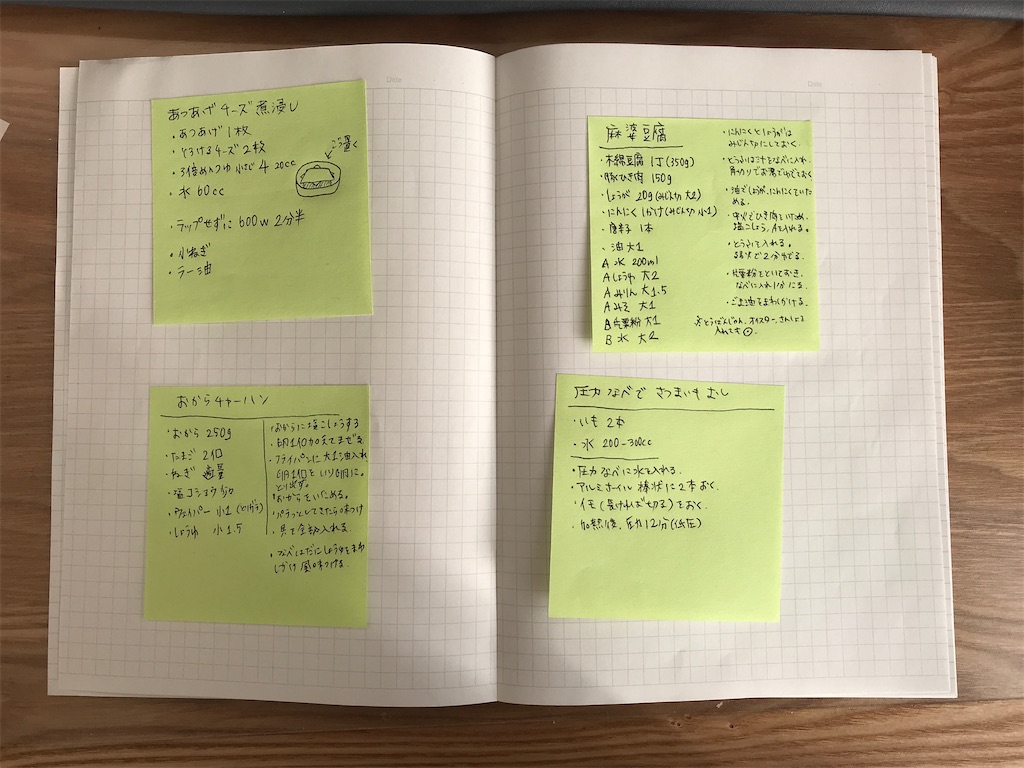 Date
あつあげチーズ煮浸し
・あつあげ 1枚
・とろけるチーズ 2枚
・3倍めんつゆ 小さじ4 20cc
・水 60cc
こう置く
ラップせずに 600w 2分半
・小ねぎ
・ラー油
おからチャーハン
・おから 250g
・たまご 2個
・ねぎ 適量
・塩コショウ 少々
・ウェイパー 小1
・しょうゆ 小1.5
・おからに塩こしょうする
・卵1個加えてまぜる
・フライパンに大1油入れ
卵1個をいり卵に。
とり出す。
・おからをいためる。
・パラっとしてきたら味つけ
・具て全部入れる。
・なべはだにしょうゆをまわ
しかけ風味つける。
Date
麻婆豆腐
・木綿豆腐 1丁(350g)
・豚ひき肉 150g
・しょうが 20g(みじん切 大2)
・にんにく 1かけ(みじん切 小1)
・唐辛子 1本
・油 大1
A 水 200ml
A しょうゆ 大2
A みりん 大1.5
A みそ 大1
B 片栗粉 大1
B 水 大2
・にんにくとしょうがは
みじん切にしておく。
・とうふは汁をなべに入れ
角切りでお湯でゆでておく
・油でしょうが、にんにくでいた
める。
・中火でひき肉をいため、
塩こしょう、Aを入れる。
・とうふを入れる。
弱火で2分ゆでる。
・片栗粉をといておき、
なべに入れ1分にる。
・ごま油をまわしかける。
※とうばんじゃん、オイスター、さんしょう
入れても◎。
圧力なべで さつまいもむし
・いも 2本
・水 200-300cc
・圧力なべに水を入れる。
・アルミホイル棒状に2本おく。
・イモ(長ければ切る)をおく。
・加熱後、圧力12分(低圧)